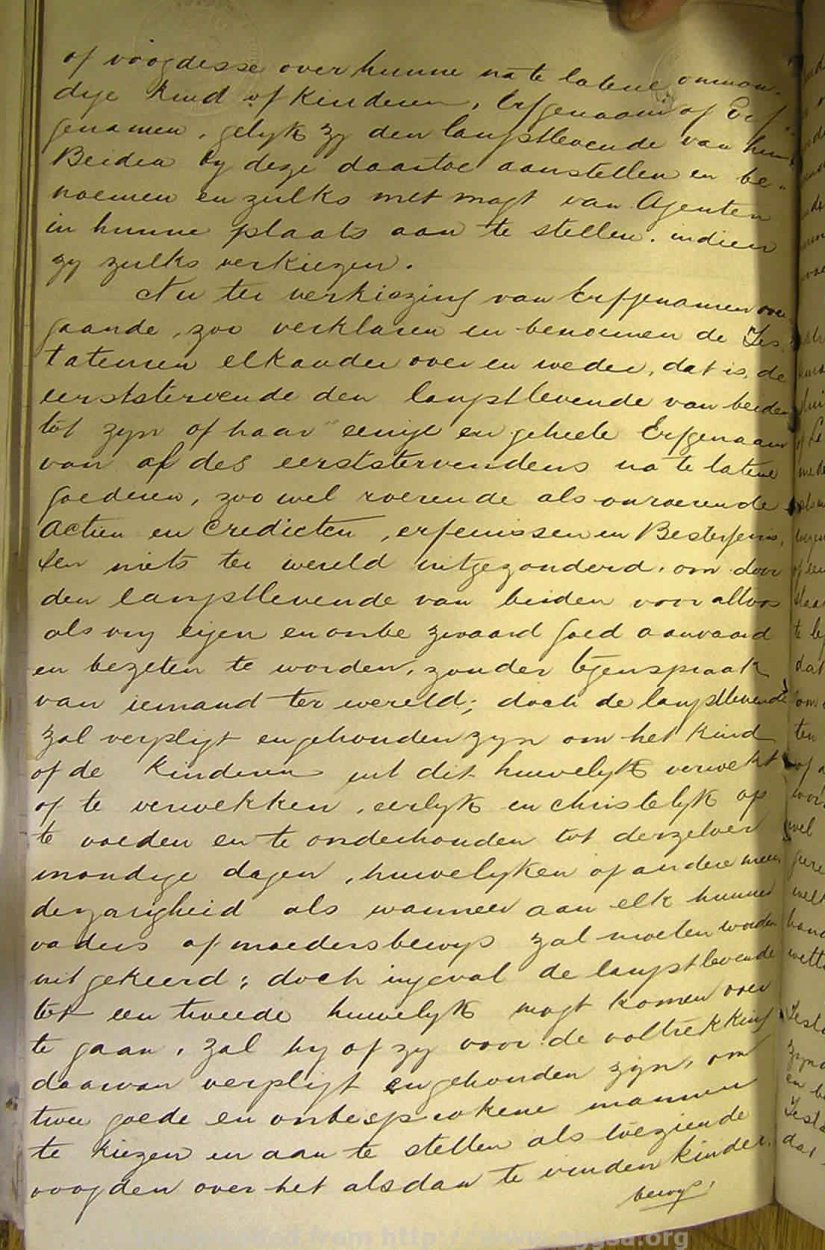 of voogdesse over hunne na te latene onmon-
dige kind of kinderen, Erfgenaam of Erf-
genamen, gelyk zy den langstlevende van hun
Beiden by deze daartoe aanstellen en be-
noemen en zulks met magt van Agenten
in hunne plaats aan te stellen, indien
zy zulks verkiezen.
Nu ter verkiezing van Erfgenamen over
gaande, zoo verklaren en benoemen de Tes-
tateuren elkander over en weder, dat is, de
eerststervende den langstlevende van beiden
tot zyn of haar eenige en geheele Erfgenaam
van al des eerststervendens na te latene
goederen, zoo wel roerende als onroerende
actien en Credieten, erfenissen en Besterfenis-
sen niets ter wereld uitgezonderd, om door
den langstlevende van beiden voor altoos
als vry eigen en onbezwaard goed aanvaard
en bezeten te worden, zonder tegenspraak
van iemand ter wereld; doch de langstlevende
zal verpligt en gehouden zyn om het kind
of de kinderen uit dit huwelyk verwekt
of te verwekken, eerlyk en christelyk op
te voeden en te onderhouden tot derzelver
mondige dagen, huwelyken of andere meer
derjarigheid als wanneer aan elk hunner
vaders of moedersbewys zal moeten worden
uitgekeerd; doch ingeval de langstlevende
tot een tweede huwelyk mogt komen over
te gaan, zal hy of zy voor de voltrekking
daarvan verpligt en gehouden zyn, om
twee goede en onbesprokene mannen
te kiezen en aan te stellen als toeziende
voogden over het alsdan te vinden kinder
bewys,
from http://www.eggsa.org